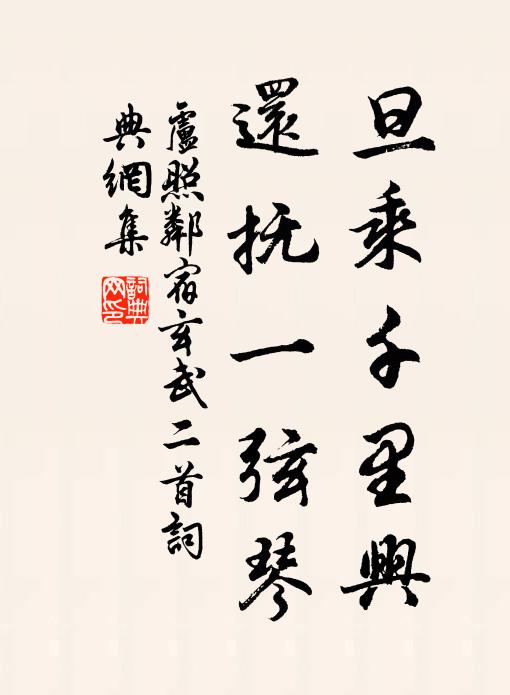 旦乘千里興
還抚一弦琴
盧照鄰宿玄武二首詞
典網集
詞典
网印